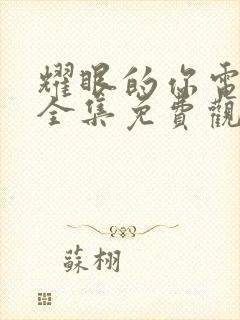 耀眼的你電
全集免費觀
蘇栩